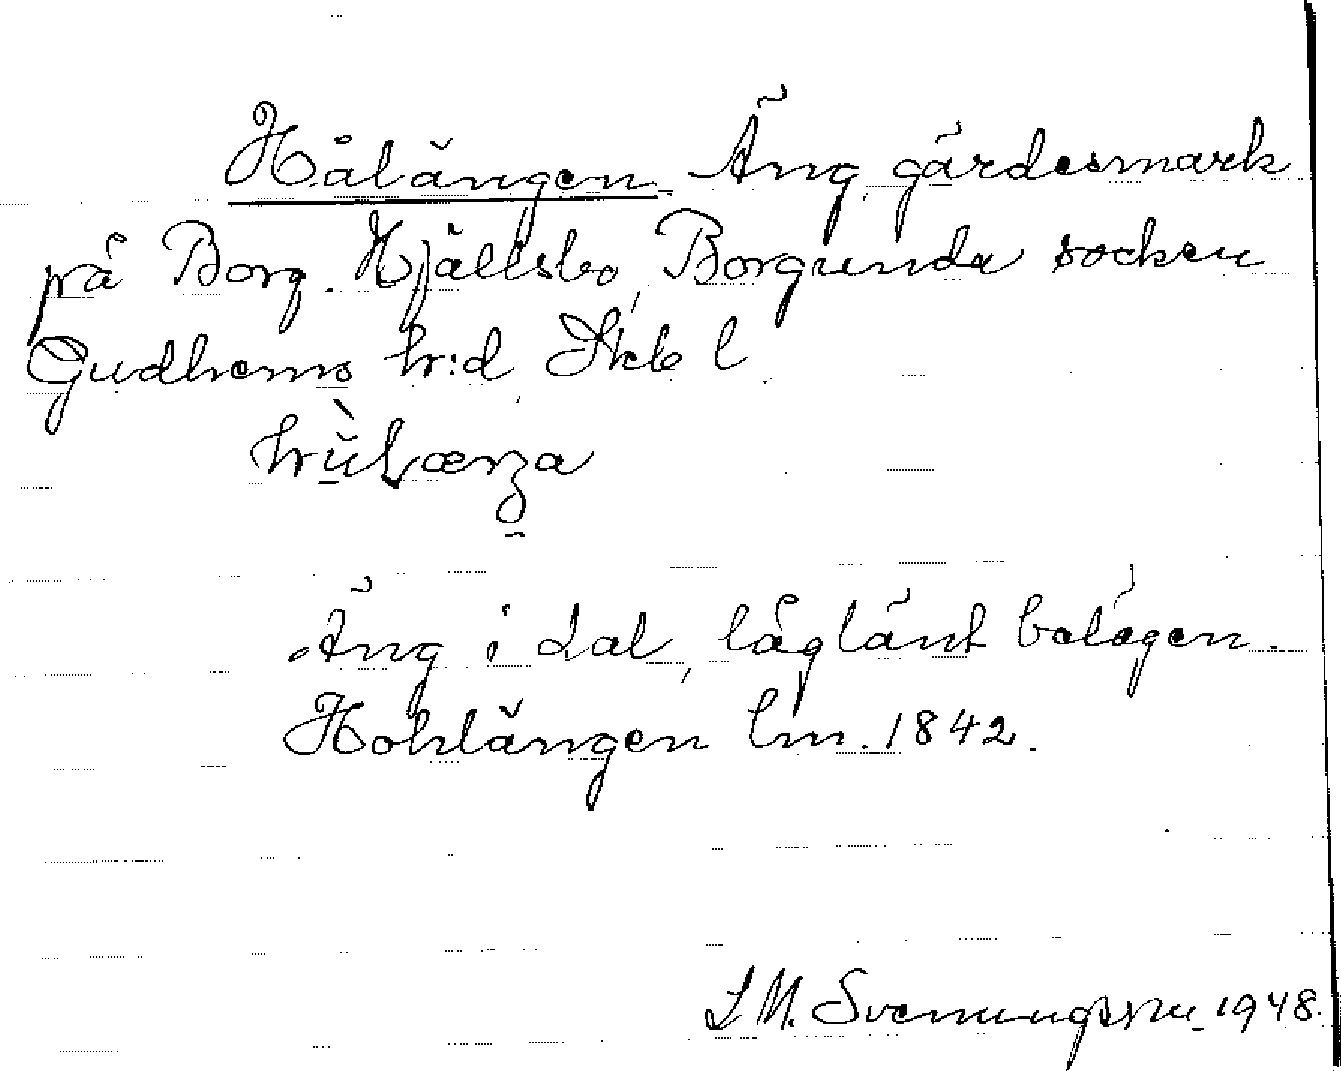 Hålängen Äng, gärdesmark
på Borg. Hjällsbo, Borgunda socken
Gudhems hr:d, Skb l.

Äng i dal, låglänt belägen.
Hohlängen lm. 1842.
L M. Svenungsson 1948.